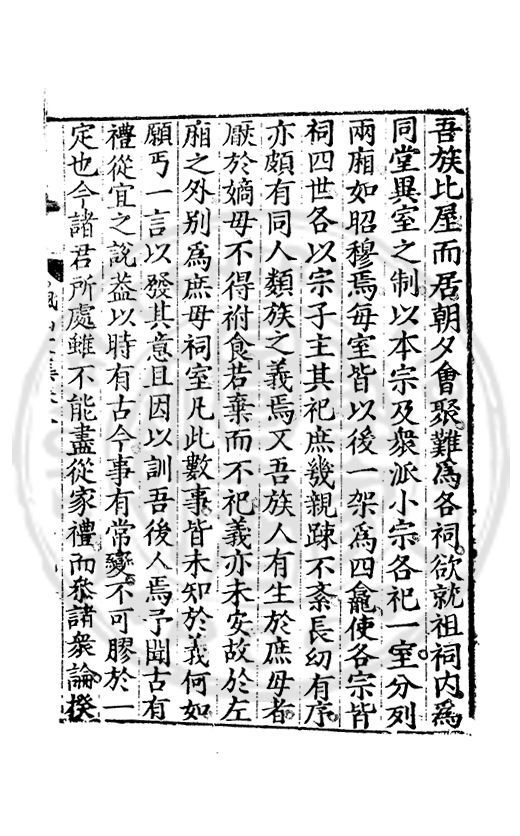 吾族比屋而居朝夕會聚難爲各祠欲就祖祠内爲
同堂異室之制以本宗及衆派小宗各祀一室分列
兩廂如昭穆焉每室皆以後一架爲四龕使各宗皆
祠四世各以宗子主其祀庶幾親踈不紊長幼有序
亦頗有同人類族之義焉又吾族人有生於庶母者
厭於嫡母不得祔食若棄而不祀義亦未安故於左
廂之外别爲庶母祠室凡此數事皆未知於義何如
願丐一言以發其意且因以訓吾後人焉予聞古有
禮從宜之說葢以時有古今事有常變不可膠於一
定也今諸君所處雖不能盡從家禮而叅諸衆論揆